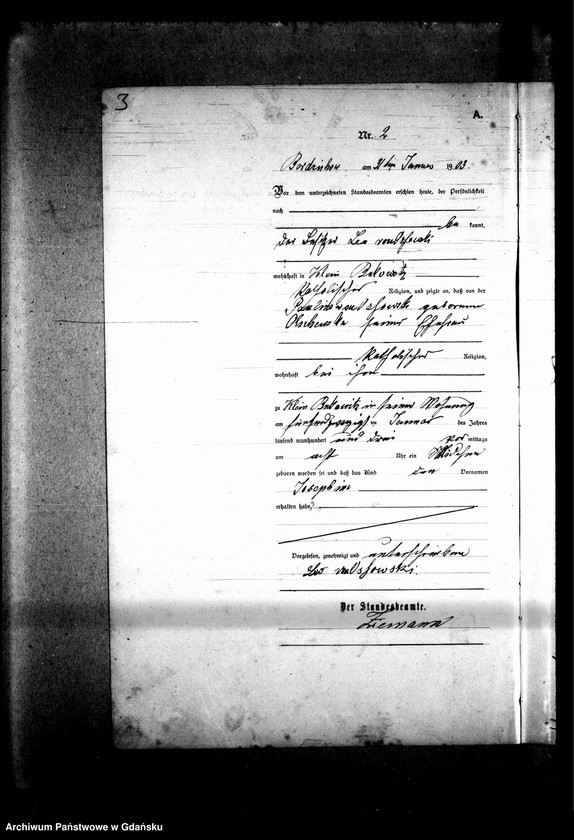 3
A.
Nr. 2
am Januar 1903.
Vor dem unterzeichneten Standesbeamten erschien heute, der Persönlichkeit
nach
be kannt,
der Besitzer Leo von
wohnhaft in Klein
katholischer Religion, und zeigte an, daß von der
geborene
seiner Ehefrau
katholischer Religion,
wohnhaft bei ihm
zu Klein in seiner Wohnung
am Januar des Jahres
tausend neunhundert und drei vor mittags
um acht Uhr ein Mädchen
geboren worden sei und daß das Kind den Vornamen
Josephine
erhalten habe.
Vorgelesen, genehmigt und unterschrieben
Leo
Der Standesbeamte.
Ziemann
Archiwum Państwowe w Gdańsku